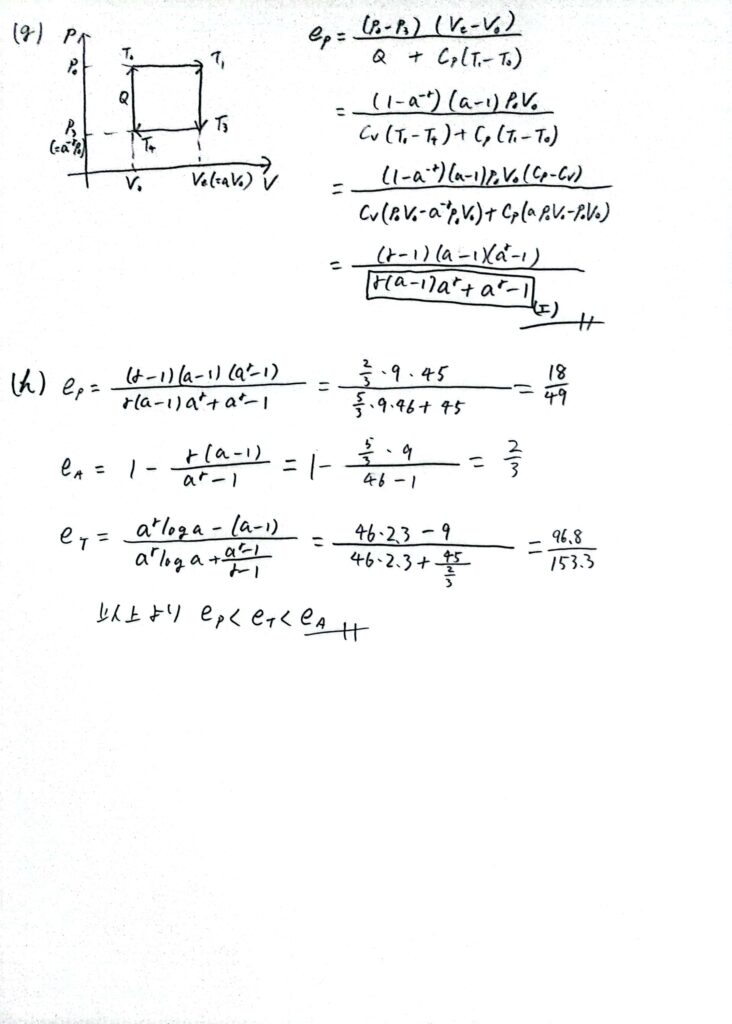 (g)
P
P₀
P₃
(=a^{-γ}P₀)
T₀
T₁
T₃
T₄
Q
V₀
V₂(=aV₀)
V
e_P = (P₀-P₃)(V₂-V₀) / Q + C_P(T₁-T₀)
= (1-a^{-γ})(a-1)P₀V₀ / C_V(T₀-T₄)+C_P(T₁-T₀)
= (1-a^{-γ})(a-1)P₀V₀(C_P-C_V) / C_V(P₀V₀-a^{-γ}P₀V₀)+C_P(aP₀V₀-P₀V₀)
= (γ-1)(a-1)(a^γ-1) / γ(a-1)a^γ+a^γ-1
(I)
(h) e_P = (γ-1)(a-1)(a^γ-1) / γ(a-1)a^γ+a^γ-1 = 2/3·9·45 / 5/3·9·46+45 = 18/49
e_A = 1 - γ(a-1) / a^γ-1 = 1- 5/3·9 / 46-1 = 2/3
e_T = a^γ log a-(a-1) / a^γ log a+a^γ-1/γ-1 = 46·2.3-9 / 46·2.3+45/2/3 = 96.8/153.3
以上より e_P<e_T<e_A